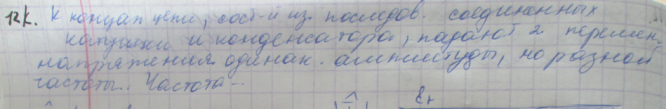 12к. К концам цепи, сост-й из последов. соединенных
катушки и конденсатора, подают 2 перемен.
напряжения одинак. амплитуды, но разной
частоты. Частота...
ε₁